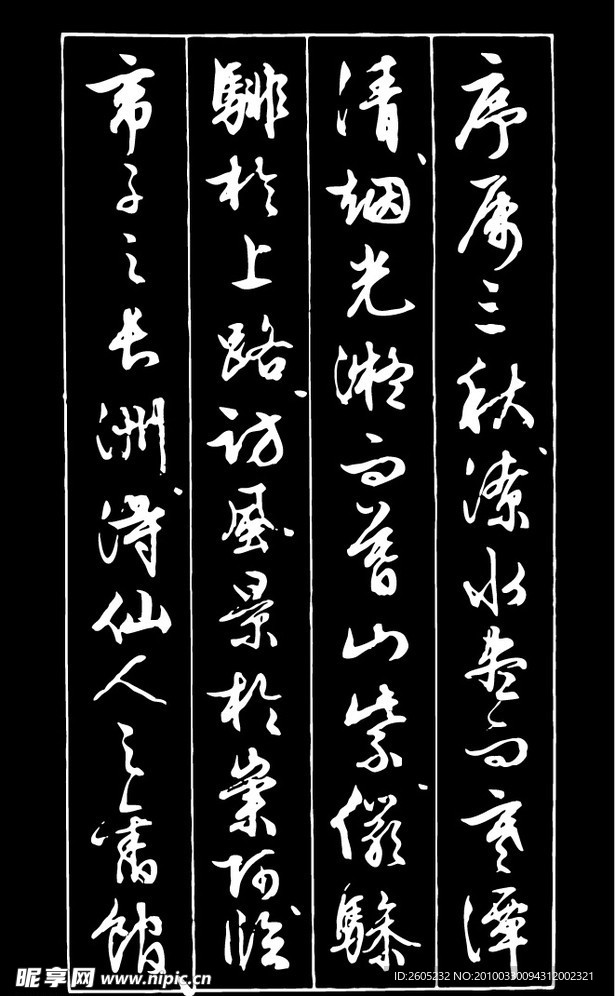 序属三秋潦水尽而寒潭
清烟光凝而暮山紫俨骖
騑於上路访风景於崇阿临
帝子之长洲得仙人之旧馆
昵享网 www.nipic.cn
ID:2605232 NO:20100330094312002321